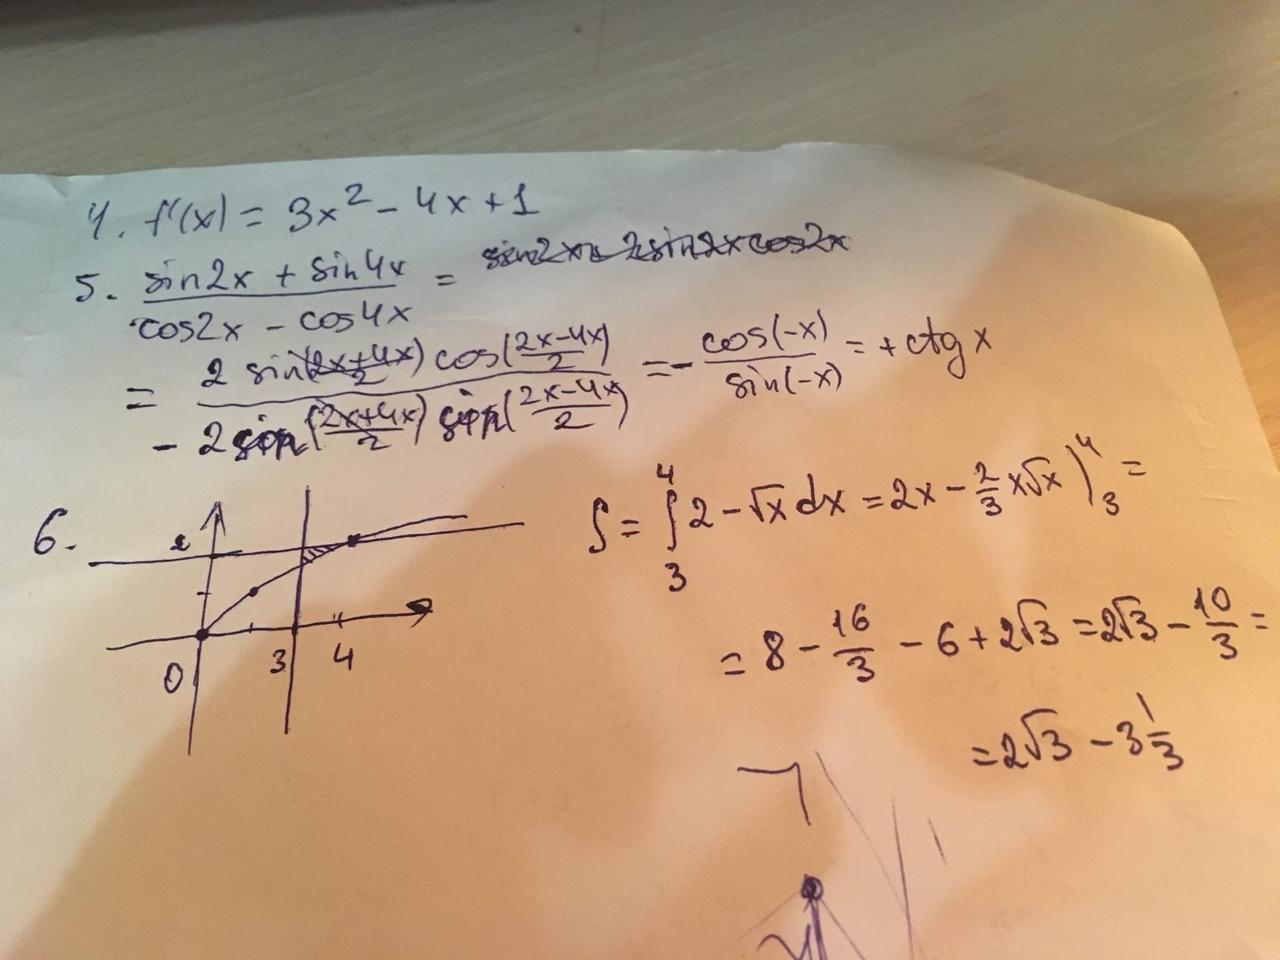 4. f'(x) = 3x² - 4x + 1
5. (sin2x + sin4x)/(cos2x - cos4x) = sin2x + 2sin2xcos2x
= (2 sin((2x+4x)/2) cos((2x-4x)/2))/(-2 sin((2x+4x)/2) sin((2x-4x)/2)) = - cos(-x)/sin(-x) = + ctg x
6.
2
0 3 4
S = ∫₃⁴ 2 - √x dx = 2x - 2/3 x√x )₃⁴ =
= 8 - 16/3 - 6 + 2√3 = 2√3 - 10/3 =
= 2√3 - 3 1/3